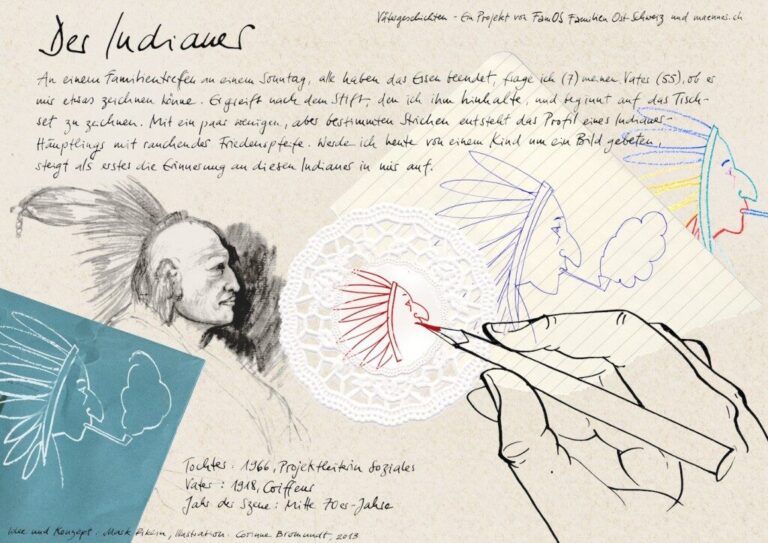 Vätergeschichten - Ein Projekt von FamOS Familien Ost-Schweiz und maenner.ch
Der Indianer
An einem Familientreffen an einem Sonntag, alle haben das Essen beendet, frage ich (7) meinen Vater (55), ob er
mir etwas zeichnen könne. Er greift nach dem Stift, den ich ihm hinhalte, und beginnt auf das Tisch-
set zu zeichnen. Mit ein paar wenigen, aber bestimmten Strichen entsteht das Profil eines Indianer-
Häuptlings mit rauchender Friedenspfeife. Werde ich heute von einem Kind um ein Bild gebeten,
steigt als erstes die Erinnerung an diesen Indianer in mir auf.
Tochter: 1966, Projektleiterin Soziales
Vater: 1918, Coiffeur
Jahr der Szene: Mitte 70er-Jahre
Idee und Konzept: Mark Riklin, Illustration: Corinne Bromundt, 2013